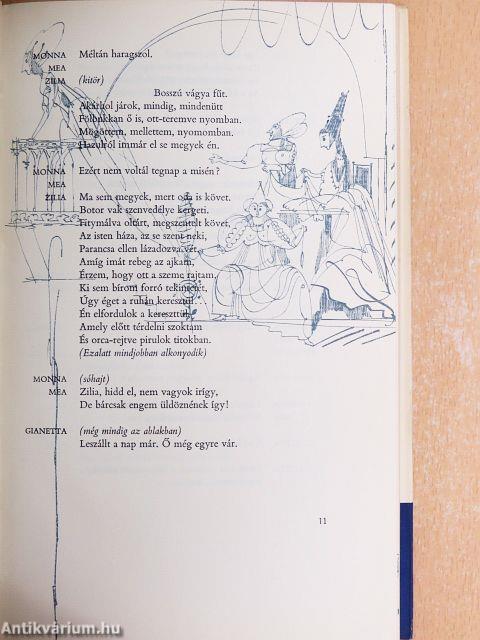 MONNA Méltán haragszol.
MEA
ZILIA (kitör)
Bosszú vágya fűt.
Akárhol járok, mindig, mindenütt
Fölbukkan ő is, ott-teremve nyomban.
Mögöttem, mellettem, nyomomban.
Hazulról immár el se megyek én.
MONNA Ezért nem voltál tegnap a misén?
MEA
ZILIA Ma sem megyek, mert oda is követ.
Botor vak szenvedélye kergeti.
Fitymálva oltárt, megszentelt követ,
Az isten háza, az se szent neki,
Parancsa ellen lázadozva vét.
Amíg imát rebeg az ajkam,
Érzem, hogy ott a szeme rajtam,
Ki sem bírom forró tekintetét,
Úgy éget a ruhán keresztül.
Én elfordulok a kereszttül,
Amely előtt térdelni szoktam
És orca-rejtve pirulok titokban.
(Ezalatt mindjobban alkonyodik)
MONNA (sóhajt)
MEA Zilia, hidd el, nem vagyok irígy,
De bárcsak engem üldöznének így!
GIANETTA (még mindig az ablakban)
Leszállt a nap már. Ő még egyre vár.
11
Antikvárium.hu